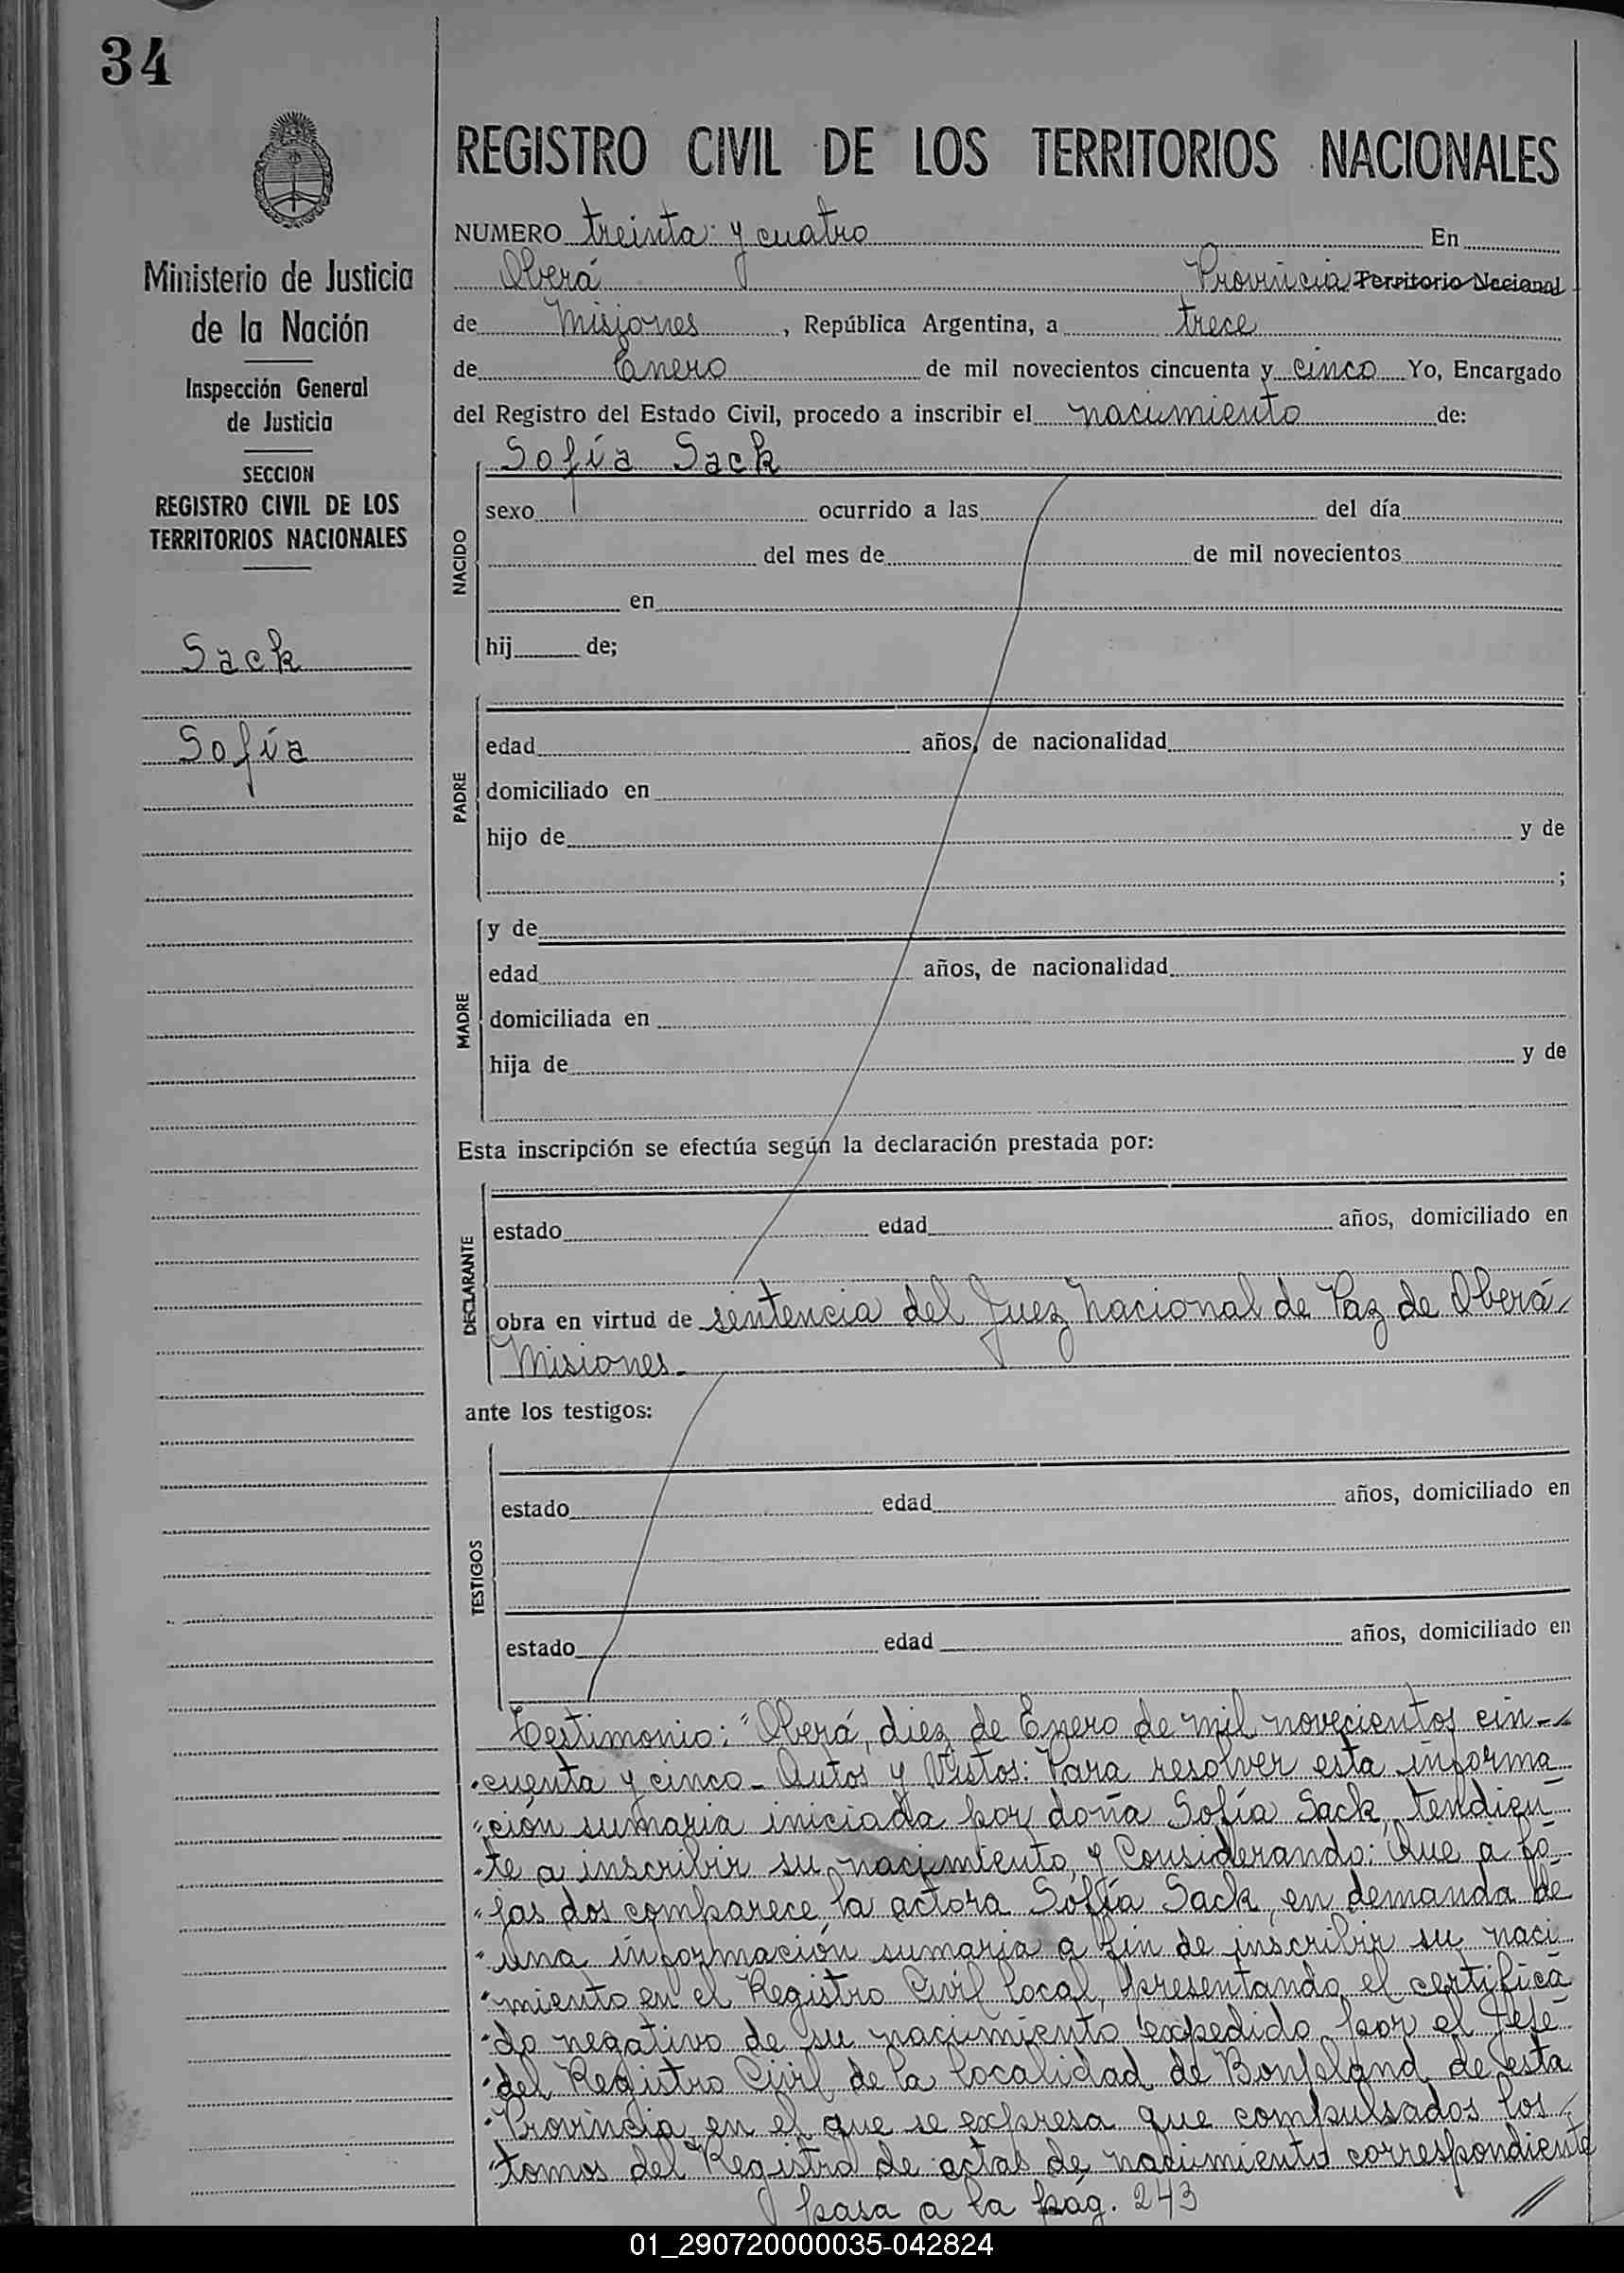 34
REGISTRO CIVIL DE LOS TERRITORIOS NACIONALES
Ministerio de Justicia
de la Nación
Inspección General
de Justicia
SECCION
REGISTRO CIVIL DE LOS
TERRITORIOS NACIONALES
Sack
Sofía
NUMERO treinta y cuatro En
Oberá Provincia Territorio Nacional
de Misiones, República Argentina, a trece
de Enero de mil novecientos cincuenta y cinco Yo, Encargado
del Registro del Estado Civil, procedo a inscribir el nacimiento de:
NACIDO
Sofía Sack
sexo ocurrido a las del día
del mes de de mil novecientos
en
hij de;
PADRE
edad años, de nacionalidad
domiciliado en
hijo de y de
;
MADRE
y de
edad años, de nacionalidad
domiciliada en
hija de y de
Esta inscripción se efectúa según la declaración prestada por:
DECLARANTE
estado edad años, domiciliado en
obra en virtud de sentencia del Juez Nacional de Paz de Oberá,
Misiones.-
ante los testigos:
TESTIGOS
estado edad años, domiciliado en
estado edad años, domiciliado en
Testimonio: "Oberá, diez de Enero de mil novecientos cin-
"cuenta y cinco - Autos y Vistos: Para resolver esta informa
"ción sumaria iniciada por doña Sofía Sack, tendien
"te a inscribir su nacimiento, y Considerando: Que a fo
"jas dos comparece la actora Sofía Sack, en demanda de
"una información sumaria a fin de inscribir su naci
"miento en el Registro Civil local, presentando el certifica
"do negativo de su nacimiento expedido por el Jefe
"del Registro Civil de la localidad de Bonpland, de esta
"Provincia, en el que se expresa que compulsados los
"tomos del Registro de actas de nacimiento correspondiente
pasa a la pág. 243
01_290720000035-042824